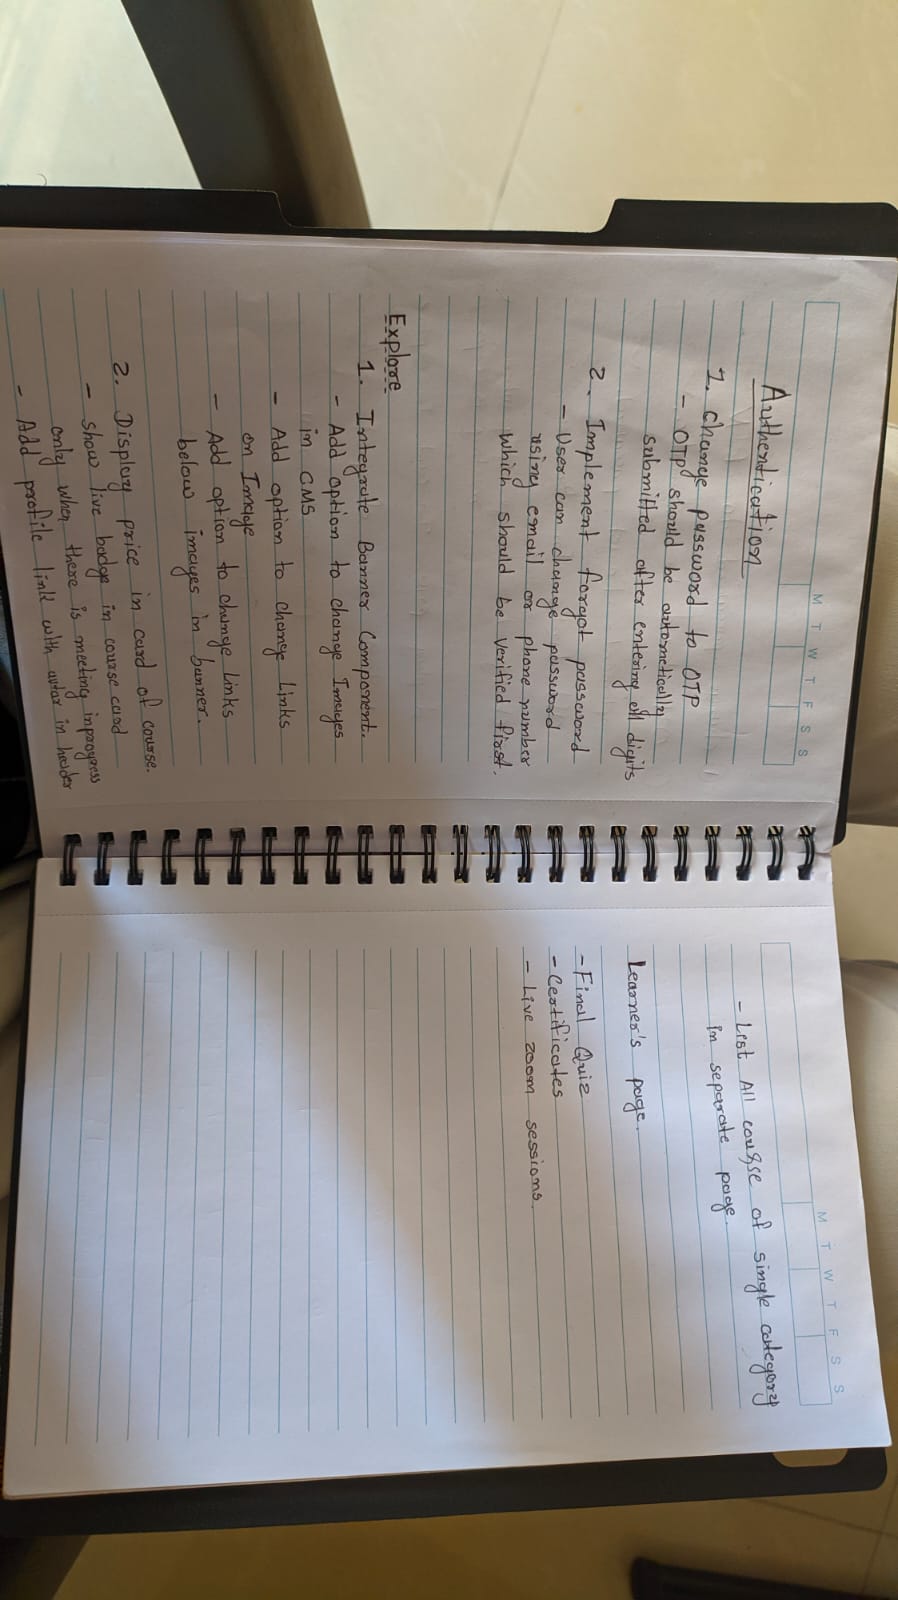 M T W T F S S
Authentication
1. Change password to OTP
- OTP should be autometically
submitted after entering all digits
2. Implement forgot password
- User can change password
using email or phone number
which should be verified first.
Explore
1. Integrate Banner Component.
- Add option to change Images
in CMS
- Add option to change Links
on Image
- Add option to change Links
below images in banner.
2. Display price in card of course.
- show live badge in course card
only when there is meeting inprogress
- Add profile link with avtar in header
M T W T F S S
- List All course of single category
in separate page.
Learner's page.
- Final Quiz
- Certificates
- Live zoom sessions.